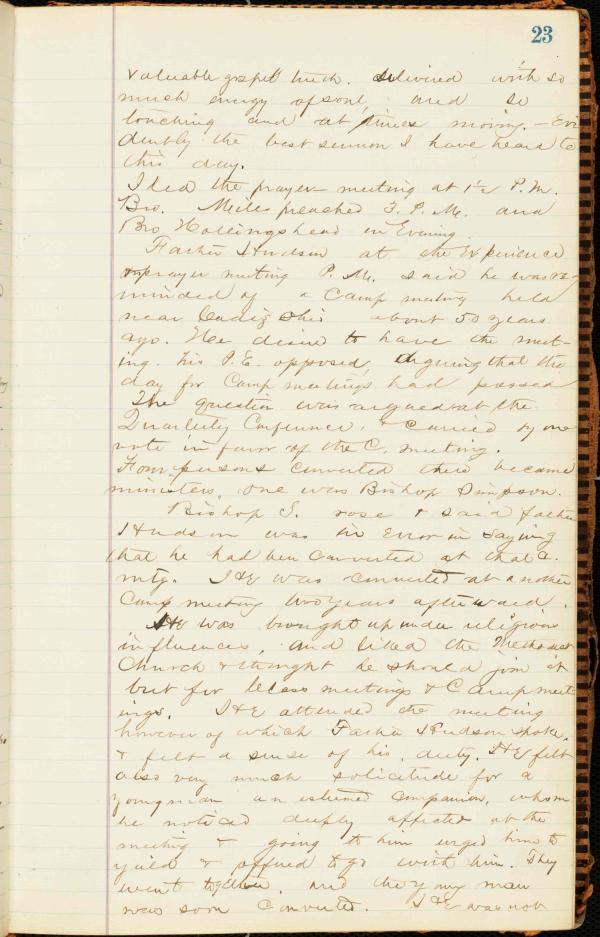 23
valuable gospel truth. delivered with so
much energy of soul, and so
touching and at times moving. - Evi
dently the best sermon I have heard to
this day.
I led the prayer meeting at 1 1/2 P.M.
Bro. Miles preached 3. P.M. and
Bro Hollingshead in Evening
Father Hudson at the Experience
& prayer meeting P.M. said he was re
minded of a Camp meeting held
near Cadiz Ohio about 50 years
ago. He desire to have the meet-
ing. his P.E. opposed, arguing that the
day for Camp meetings had passed
The question was argued at the
Quarterly Conference, & carried by one
vote in favor of the C. meeting.
From persons converted there became
ministers, one was Bishop Simpson.
Bishop S. rose & said father
Hudson was in Error in saying
that he had been converted at that C.
mtg. He was converted at another
Camp meeting two years afterward.
He was brought up under religious
influences, and liked the Methodist
Church & thought he should join it
but for Class meetings & Camp meet
ings. He attended the meeting
however of which Father Hudson spoke,
& felt a sense of his duty. He felt
also very much solicitude for a
young man an esteemed companion, whom
he noticed deeply affected at the
meeting & going to him urged him to
yield & offered to go with him. They
went together, and the young man
was soon converted. He was not